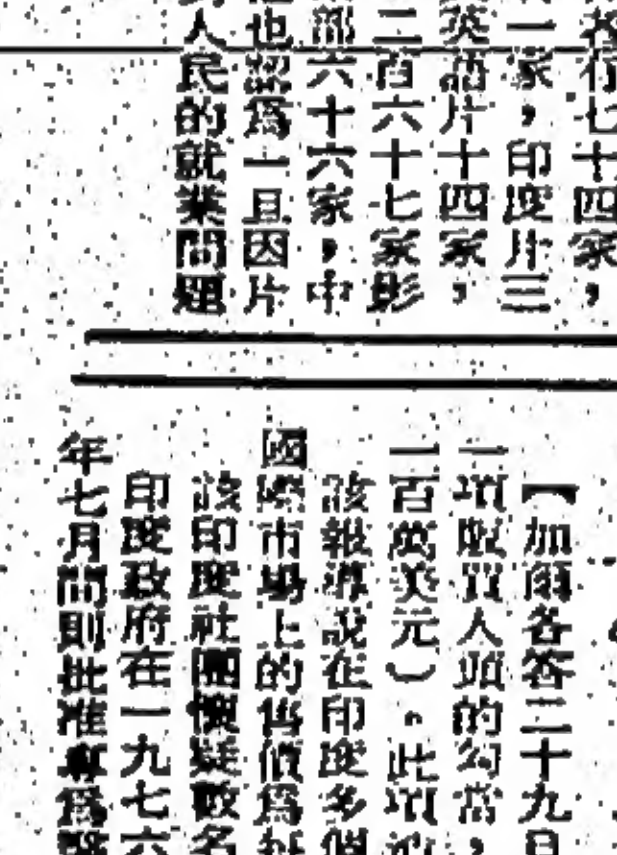 校行七十四家，
一家，印度片三
英語片十四家，
二百六十七家影
部六十六家，中
也認爲一旦因片
人民的就業問題
【加爾各答二十九日
一項販買人頭的勾當，
一百萬美元）。此項
該報導說在印度多個
國際市場上的售價爲每
該印度社團懷疑數名
印度政府在一九七六
年七月間則批准專爲醫